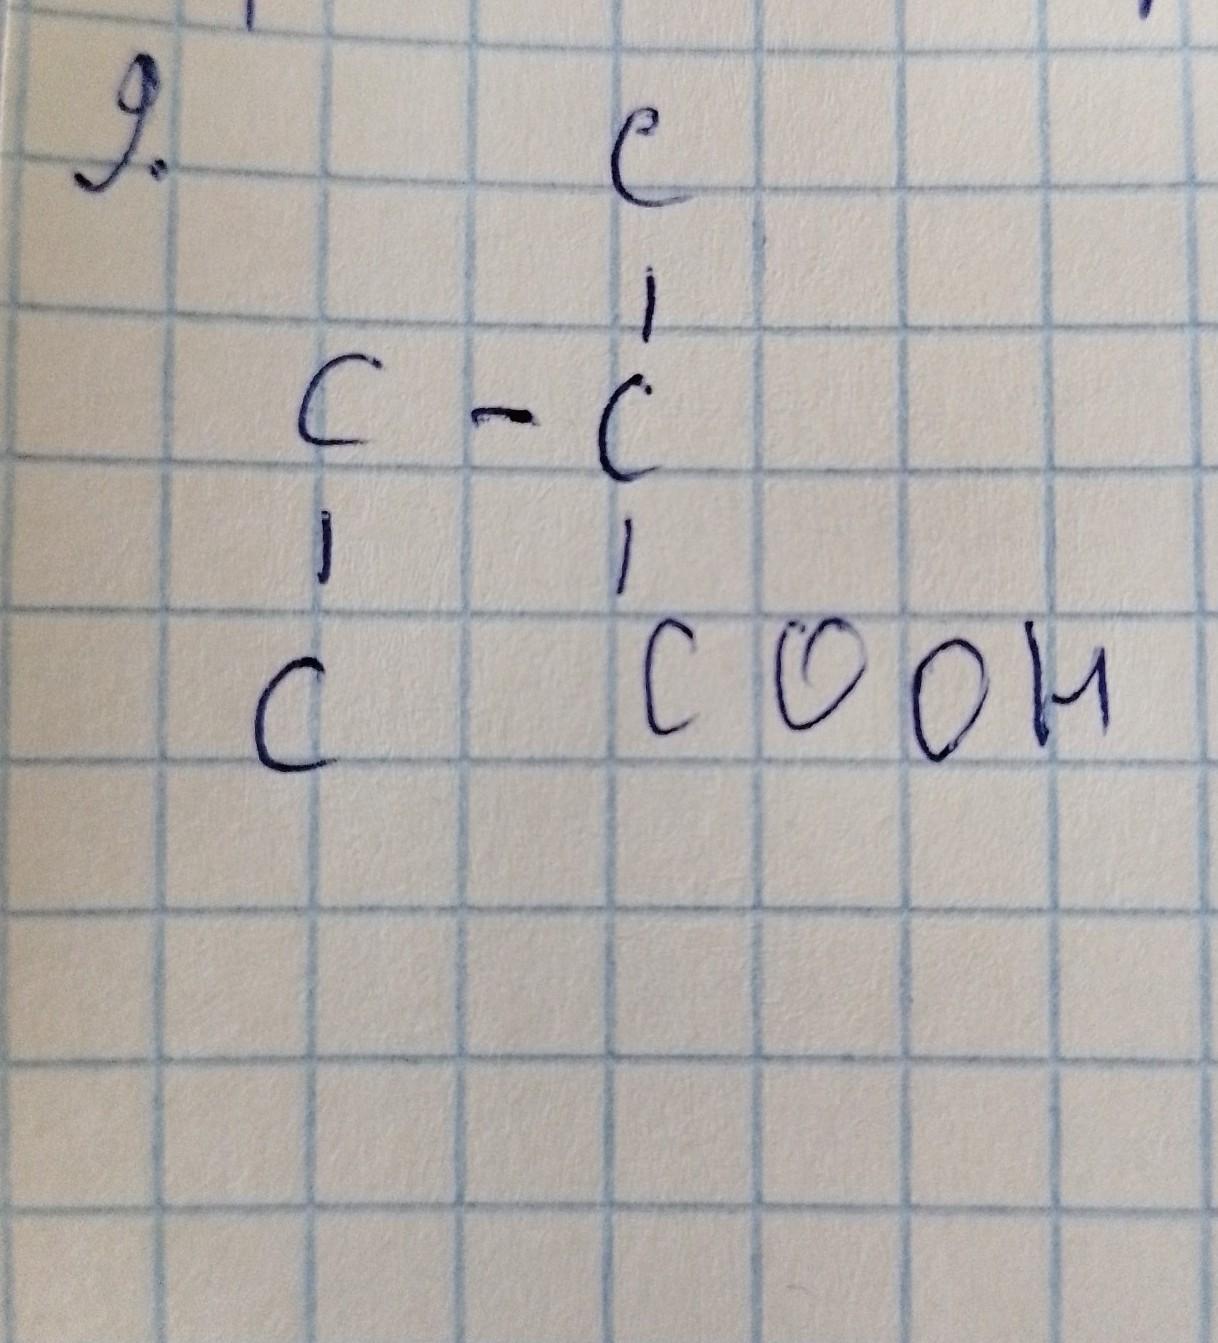 9.
C
C - C
C COOH